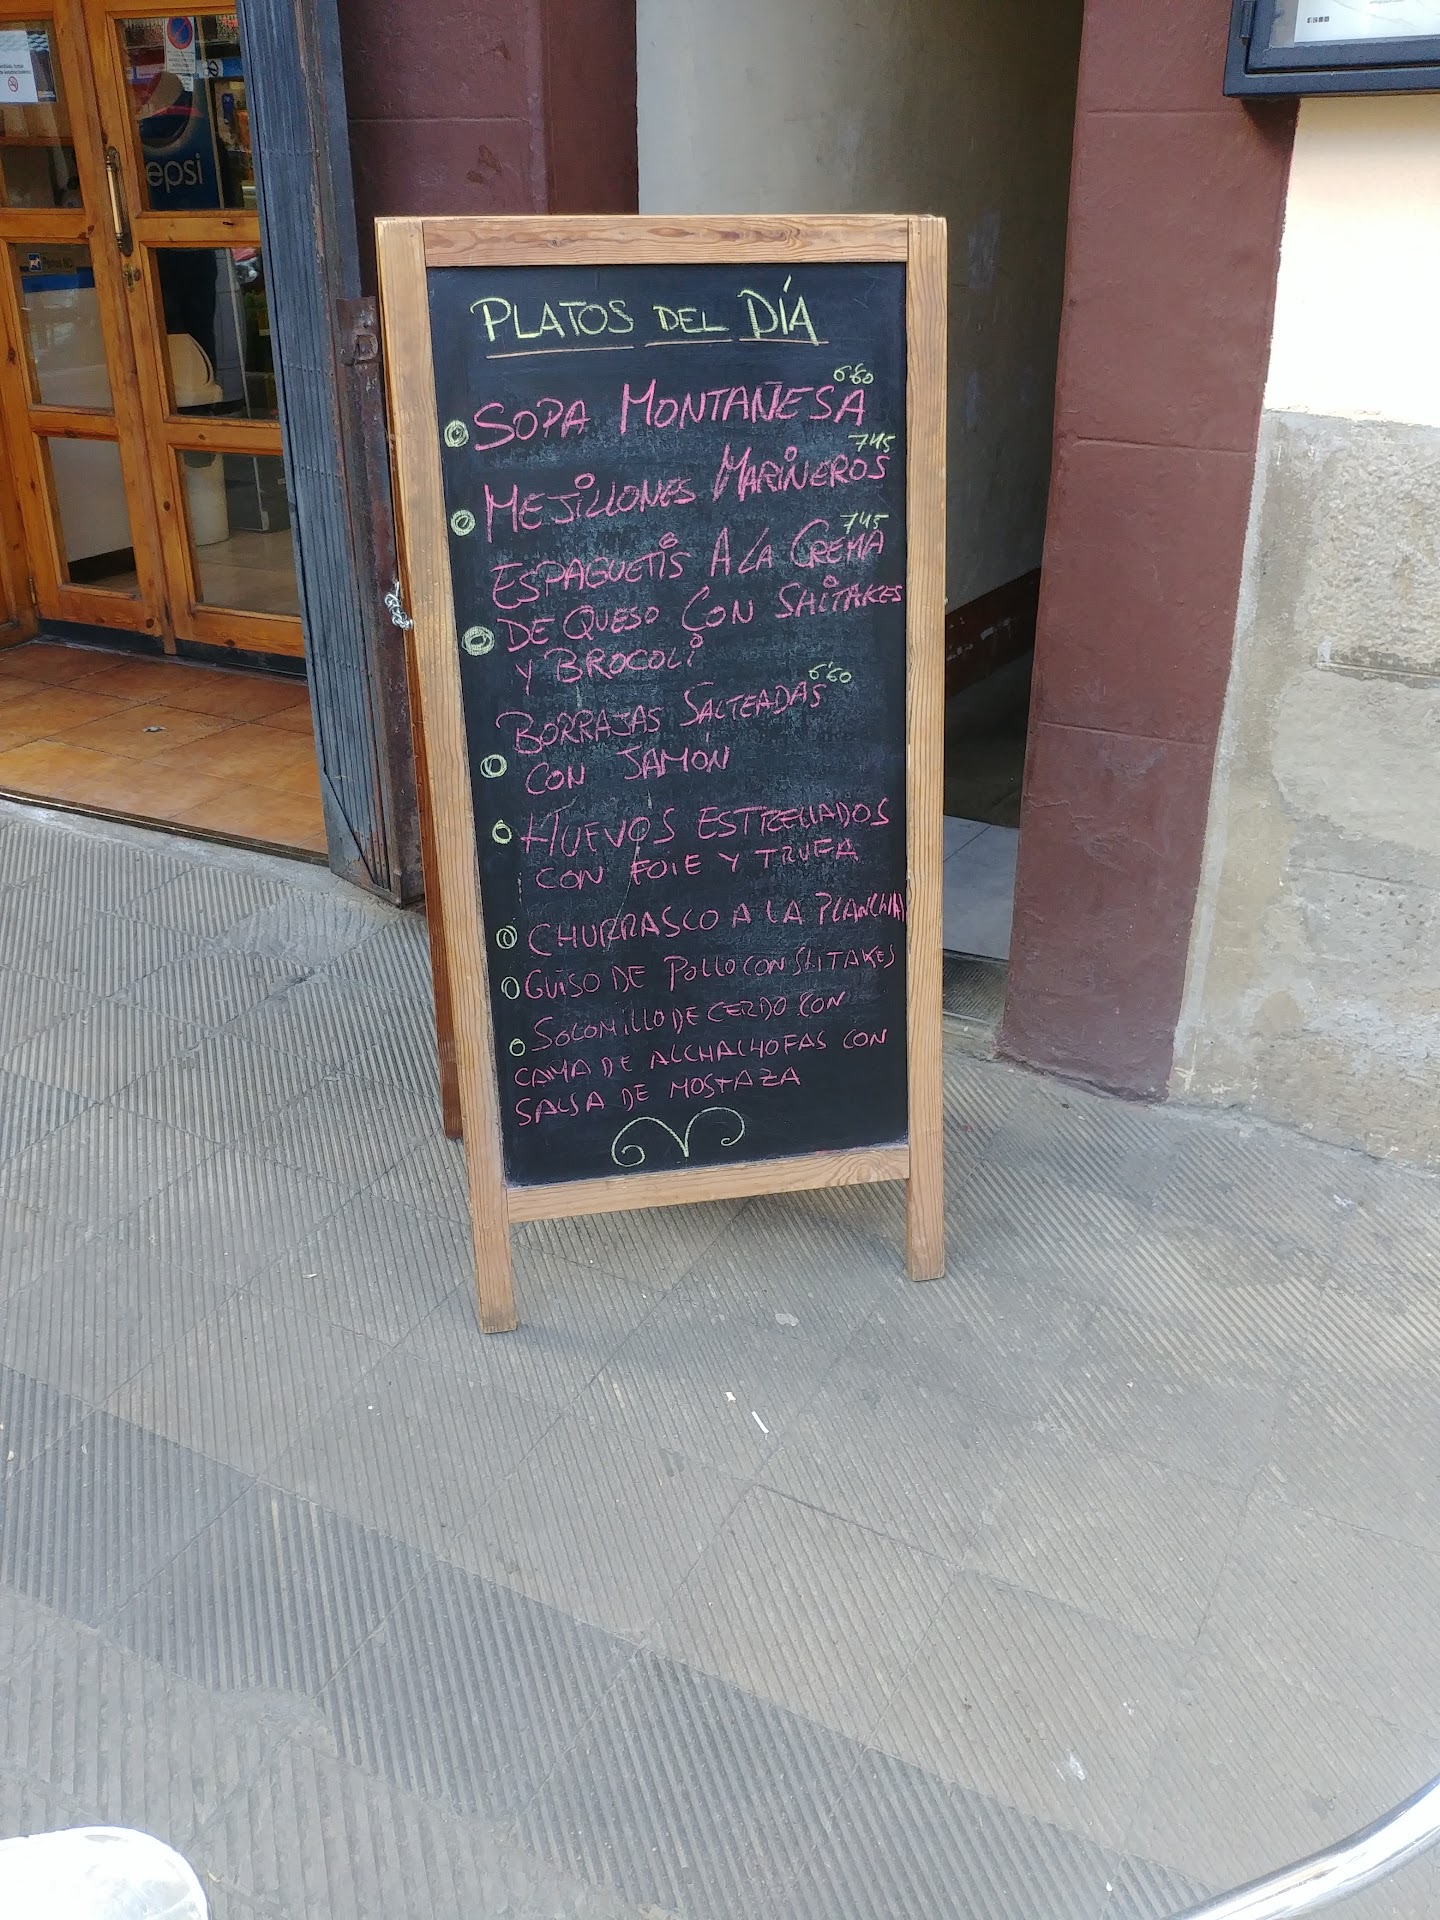 epsi
PLATOS DEL DÍA
6'60
SOPA MONTAÑESA
7'45
MEJILLONES MARINEROS
7'45
ESPAGUETIS A LA CREMA
DE QUESO CON SHITAKES
Y BROCOLI
6'60
BORRAJAS SALTEADAS
CON JAMÓN
HUEVOS ESTRELLADOS
CON FOIE Y TRUFA
CHURRASCO A LA PLANCHA
GUISO DE POLLO CON SHITAKES
SOLOMILLO DE CERDO CON
CAMA DE ALCHACHOFAS CON
SALSA DE MOSTAZA